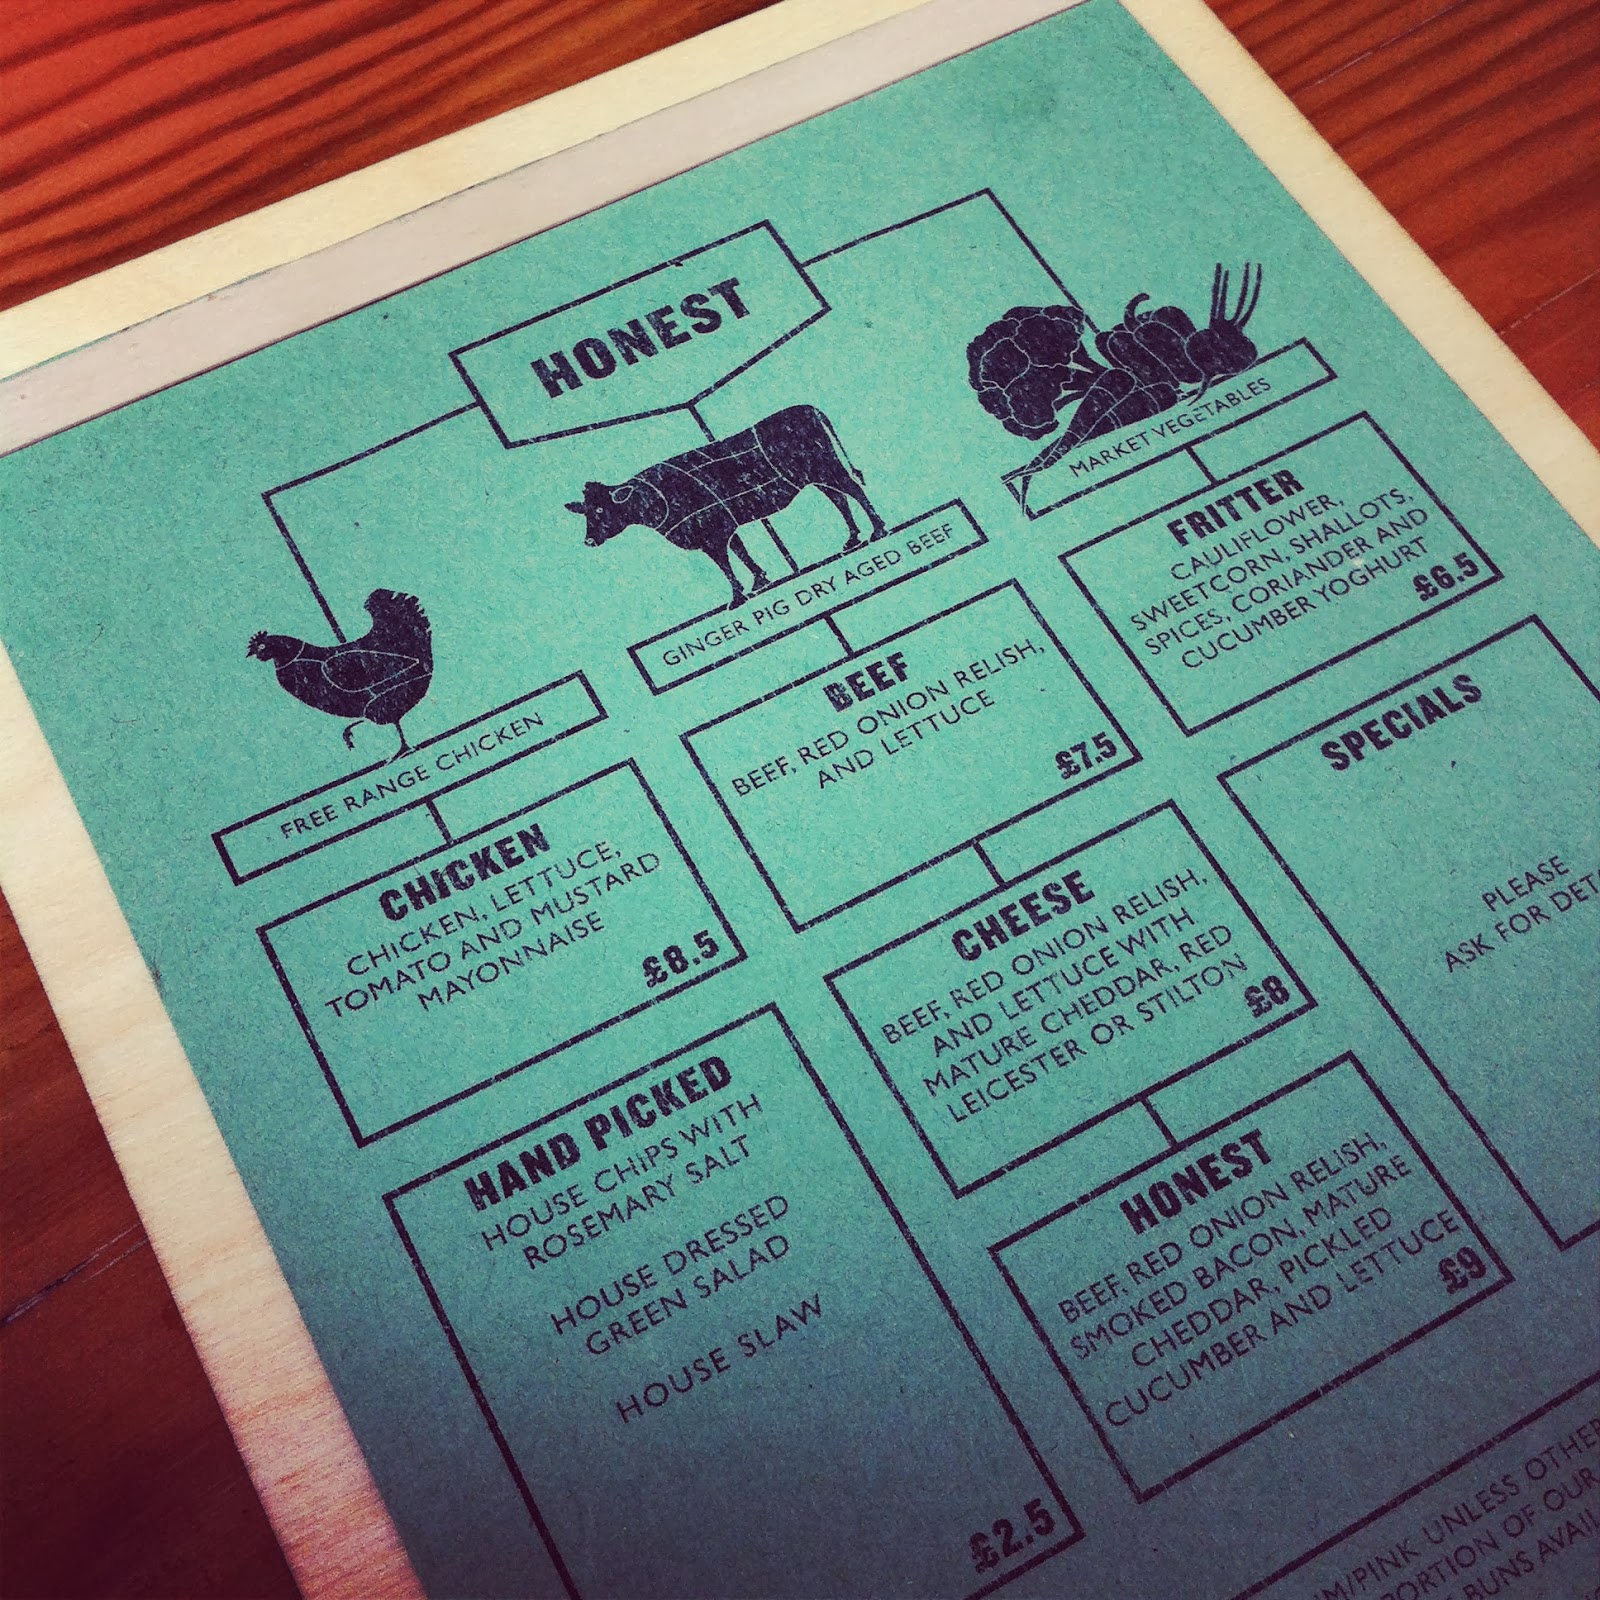 HONEST
FREE RANGE CHICKEN
CHICKEN
CHICKEN, LETTUCE,
TOMATO AND MUSTARD
MAYONNAISE
£8.5
GINGER PIG DRY AGED BEEF
BEEF
BEEF, RED ONION RELISH,
AND LETTUCE
£7.5
MARKET VEGETABLES
FRITTER
CAULIFLOWER,
SWEETCORN, SHALLOTS,
SPICES, CORIANDER AND
CUCUMBER YOGHURT
£6.5
CHEESE
BEEF, RED ONION RELISH,
AND LETTUCE WITH
MATURE CHEDDAR, RED
LEICESTER OR STILTON
£8
SPECIALS
PLEASE
ASK FOR
HAND PICKED
HOUSE CHIPS WITH
ROSEMARY SALT
HOUSE DRESSED
GREEN SALAD
HOUSE SLAW
£2.5
HONEST
BEEF, RED ONION RELISH,
SMOKED BACON, MATURE
CHEDDAR, PICKLED
CUCUMBER AND LETTUCE
£9
PINK UNLESS
OF OUR
BUNS